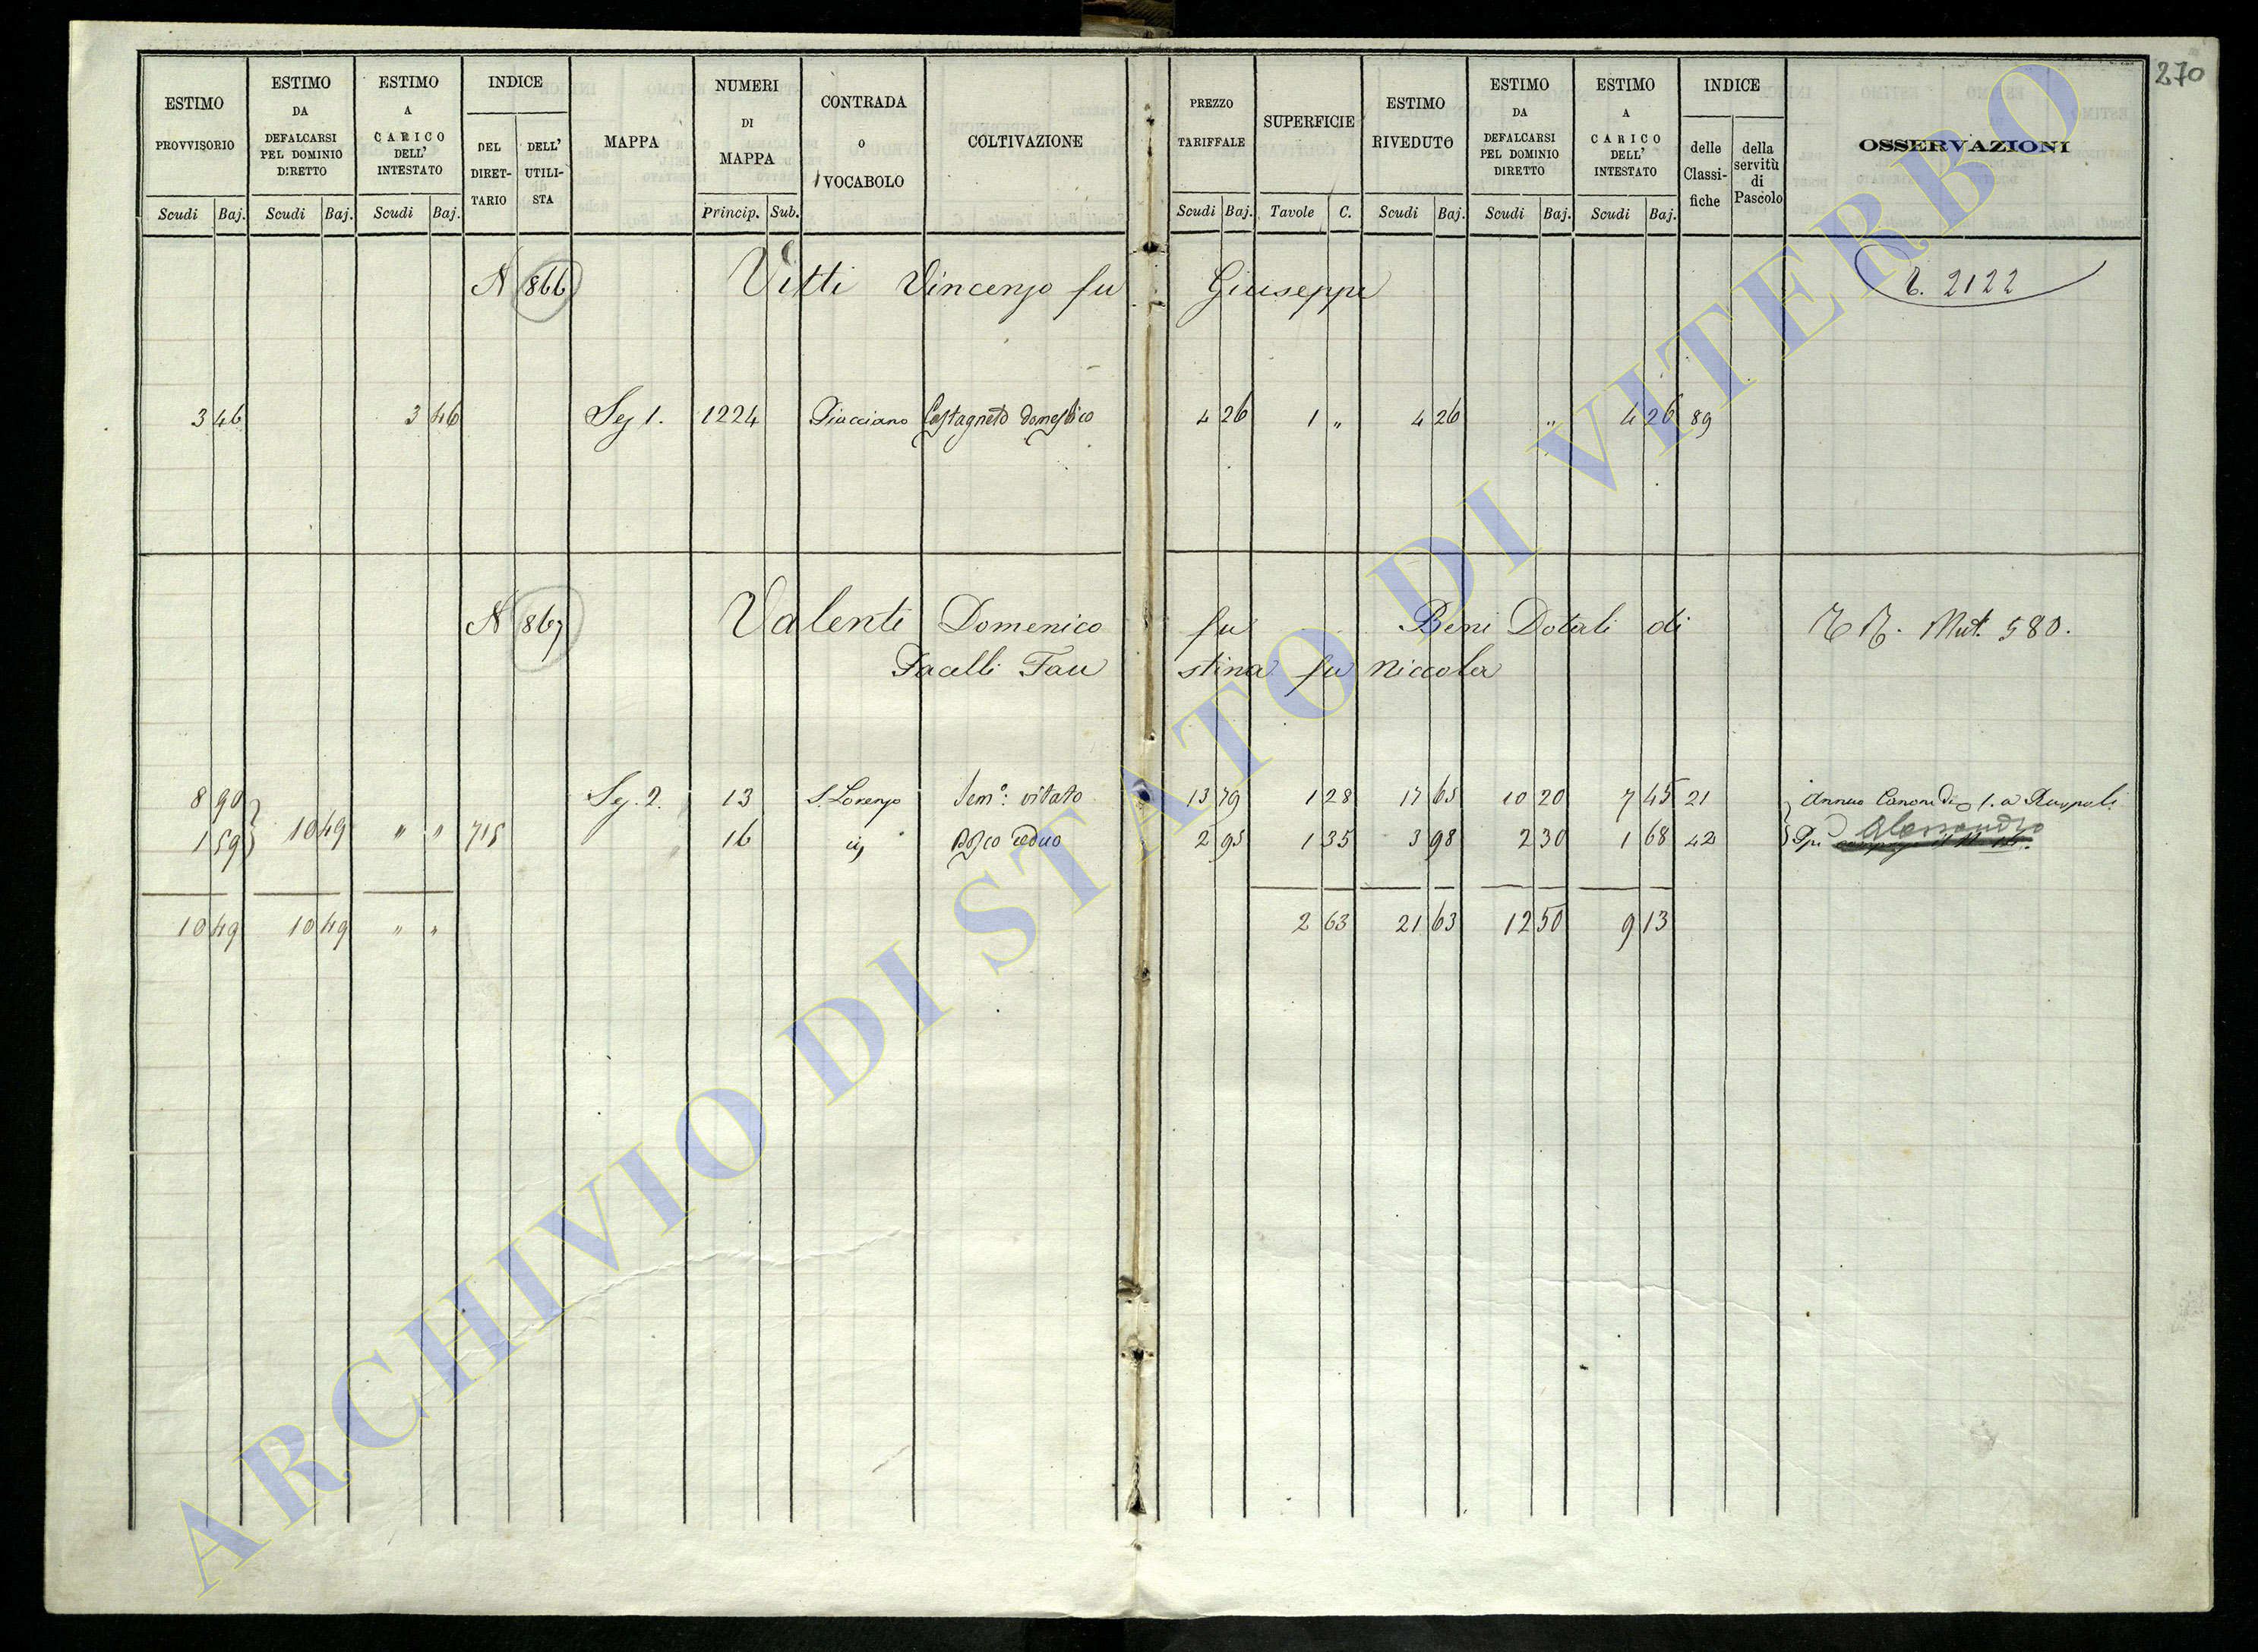 270
ESTIMO PROVVISORIO
ESTIMO DA DEFALCARSI PEL DOMINIO DIRETTO
ESTIMO A CARICO DELL' INTESTATO
INDICE
DEL DIRET-TARIO
DELL' UTILI-STA
MAPPA
NUMERI DI MAPPA
CONTRADA O VOCABOLO
COLTIVAZIONE
PREZZO TARIFFALE
SUPERFICIE
ESTIMO RIVEDUTO
ESTIMO DA DEFALCARSI PEL DOMINIO DIRETTO
ESTIMO A CARICO DELL' INTESTATO
INDICE
delle Classi-fiche
della servitù di Pascolo
OSSERVAZIONI
Scudi Baj. Scudi Baj. Scudi Baj. Princip. Sub. Scudi Baj. Tavole C. Scudi Baj. Scudi Baj. Scudi Baj.
N 866 Vitti Vincenzo fu Giuseppe 2122
3 46 3 46 Sez 1. 1224 Piacciano Castagneto domestico 4 26 1 " 4 26 " 4 26 89
N 867 Valenti Domenico fu Beni Dotali di Mut. 580.
Pacelli Fau stina fu Niccola
8 90 Sez. 2. 13 S. Lorenzo Sem.o: vitato 13 79 1 28 17 65 10 20 7 45 21 Annuo Canone di a Ruspoli
1 59 10 49 " " 715 16 id Bosco ceduo 2 95 1 35 3 98 2 30 1 68 42 Alessandro
10 49 10 49 " " 2 63 21 63 12 50 9 13
ARCHIVIO DI STATO DI VITERBO